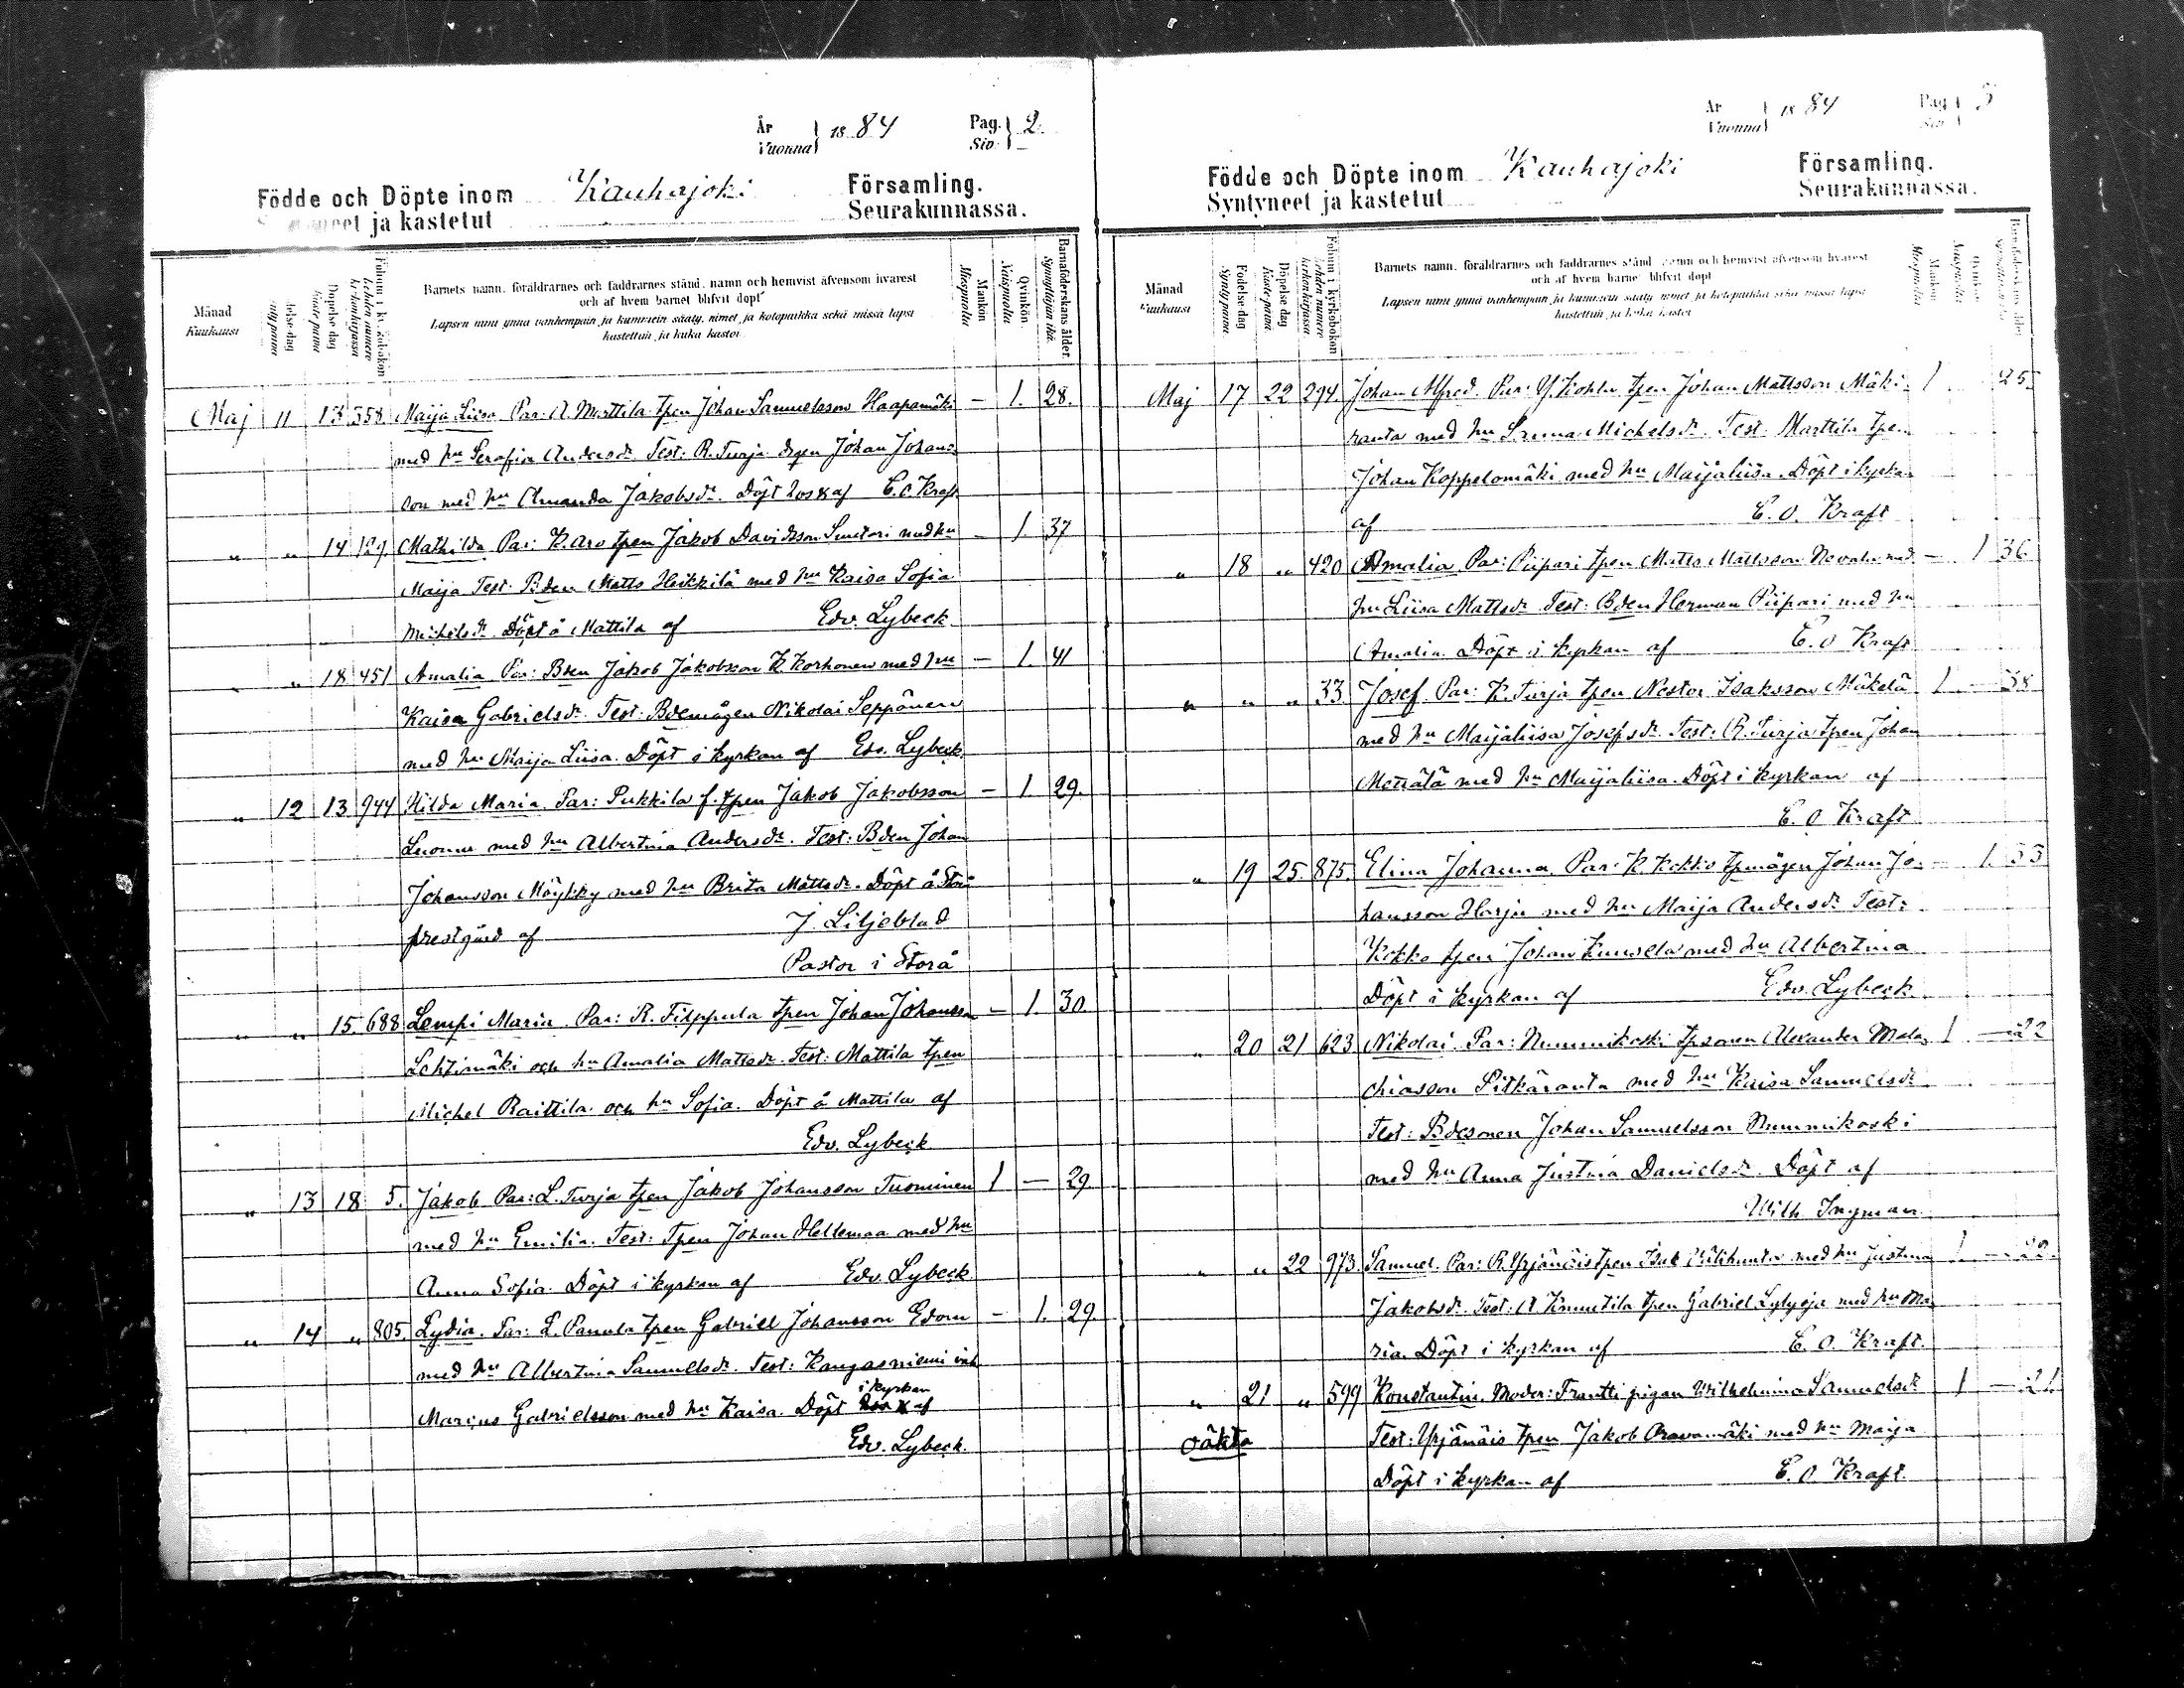 År
Vuonna } 1884 Pag.
Siv. } 2.
Födde och Döpte inom Kauhajoki Församling.
ja kastetut Seurakunnassa.
Månad
Kuukausi
Barnets namn, föräldrarnes och faddrarnes stånd, namn och hemvist äfvensom hvarest
och af hvem barnet blifvit döpt
Lapsen nimi ynnä vanhempain ja kummein sääty, nimet ja kotopaikka sekä missä lapsi
kastettiin ja kuka kastoi
Mankön
Miespuolia
Qvinkön
Naispuolia
Barnaföderskans ålder.
Synnyttäjän ikä.
Maj 11 13 358 Maija Liisa Par: A. Marttila tpen Johan Samuelsson Haapamäki — 1. 28.
med hu Serafia Andersdr. Test: R. Turja Johan Johans-
son med hu Amanda Jakobsdr. Döpt af E. O. Kraft
" " 14 129 Mathilda Par: K. Aro tpen Jakob Davidsson Suutari med hu — 1. 37
Maija Test: Bden Matts Heikkilä med hu Kaisa Sofia
Michelsdr. Döpt å Mattila af Edv. Lybeck
" " 18 451 Amalia Par: Bden Jakob Jakobsson K. Korhonen med hu — 1. 41
Kaisa Gabrielsdr. Test: Bdemågen Nikolai Seppänen
med hu Maija Liisa. Döpt i kyrkan af Edv. Lybeck
" 12 13 944 Hilda Maria. Par: Pukkila f. tpen Jakob Jakobsson — 1 29.
Luoma med hu Albertina Andersdr. Test: Bden Johan
Johansson Möykky med hu Brita Mattsdr. Döpt å Storå
prestgård af J. Liljeblad
Pastor i Storå
" " 15. 688 Lempi Maria. Par: R. Filppula tpen Johan Johansson — 1. 30.
Lehtimäki och hu Amalia Mattsdr. Test: Mattila tpen
Michel Raittila och hu Sofia. Döpt å Mattila af
Edv. Lybeck
" 13 18 5. Jakob Par: L. Turja tpen Jakob Johansson Tuominen 1 — 29
med hu Emilia. Test: Tpen Johan Hellemaa med hu
Anna Sofia. Döpt i kyrkan af Edv. Lybeck
" 14 " 805. Lydia. Par: L. Panula tpen Gabriel Johansson Edom — 1. 29.
med hu Albertina Samuelsdr. Test: Kangasniemi inh
i kyrkan
Marcus Gabrielsson med hu Kaisa. Döpt af
Edv. Lybeck.
År
Vuonna } 1884 Pag.
Siv. } 3
Födde och Döpte inom Kauhajoki Församling.
Syntyneet ja kastetut Seurakunnassa.
Månad
Kuukausi
Födelsedag
Syntypäivä.
Döpelsedag
Kastepäivä
Folium i kyrkoboken
Lehden numero
kirkonkirjassa
Barnets namn, föräldrarnes och faddrarnes stånd, namn och hemvist äfvensom hvarest
och af hvem barnet blifvit döpt
Lapsen nimi ynnä vanhempain ja kummein sääty, nimet ja kotopaikka sekä missä lapsi
kastettiin ja kuka kastoi
Maj 17 22 294. Johan Alfred. Par: Y. tpen Johan Mattsson Mäki- 1 25.
ranta med hu Sanna Michelsdr. Test: Marttila tpen
Johan Koppelomäki med hu Maijaliisa. Döpt i kyrkan
af E. O. Kraft
" 18 " 420 Amalia. Par: Piipari tpen Matts Mattsson Nevala med — 1 36
hu Liisa Mattsdr. Test: Bden Herman Piipari med hu
Amalia. Döpt i kyrkan af E. O Kraft
" " " 33 Josef. Par: K. Turja tpen Nestor Isaksson Mäkelä 1 — 38
med hu Maijaliisa Josefsdr. Test: R. Turja tpen Johan
Metsälä med hu Maijaliisa. Döpt i kyrkan af
E. O Kraft
" 19 25. 875. Elina Johanna Par: K. Kokko tpmågen Johan Jo- — 1. 33
hansson Harju med hu Maija Andersdr. Test:
Kokko tpen Johan med hu Albertina
Döpt i kyrkan af Edv. Lybeck
" 20 21 623 Nikolai. Par: Nummikoski tpsonen Alexander Mala- 1 — 22
chiasson Pitkäranta med hu Kaisa Samuelsdr.
Test: Bdesonen Johan Samuelsson Nummikoski
med hu Anna Justina Danielsdr. Döpt af
Wilh. Ingman.
" " 22 973. Samuel. Par: R. Yrjänäis tpen Isak Pitkäranta med hu Justina 1 —
Jakobsdr. Test: A Knuutila tpen Gabriel Lylyoja med hu Ma-
ria. Döpt i kyrkan af E. O. Kraft.
" 21 " 599 Konstantin. Moder: Frantti pigan Wilhelmina Samuelsdr. 1 — 21.
oäkta Test: Yrjänäis tpen Jakob Oravamäki med hu Maija
Döpt i kyrkan af E. O. Kraft.